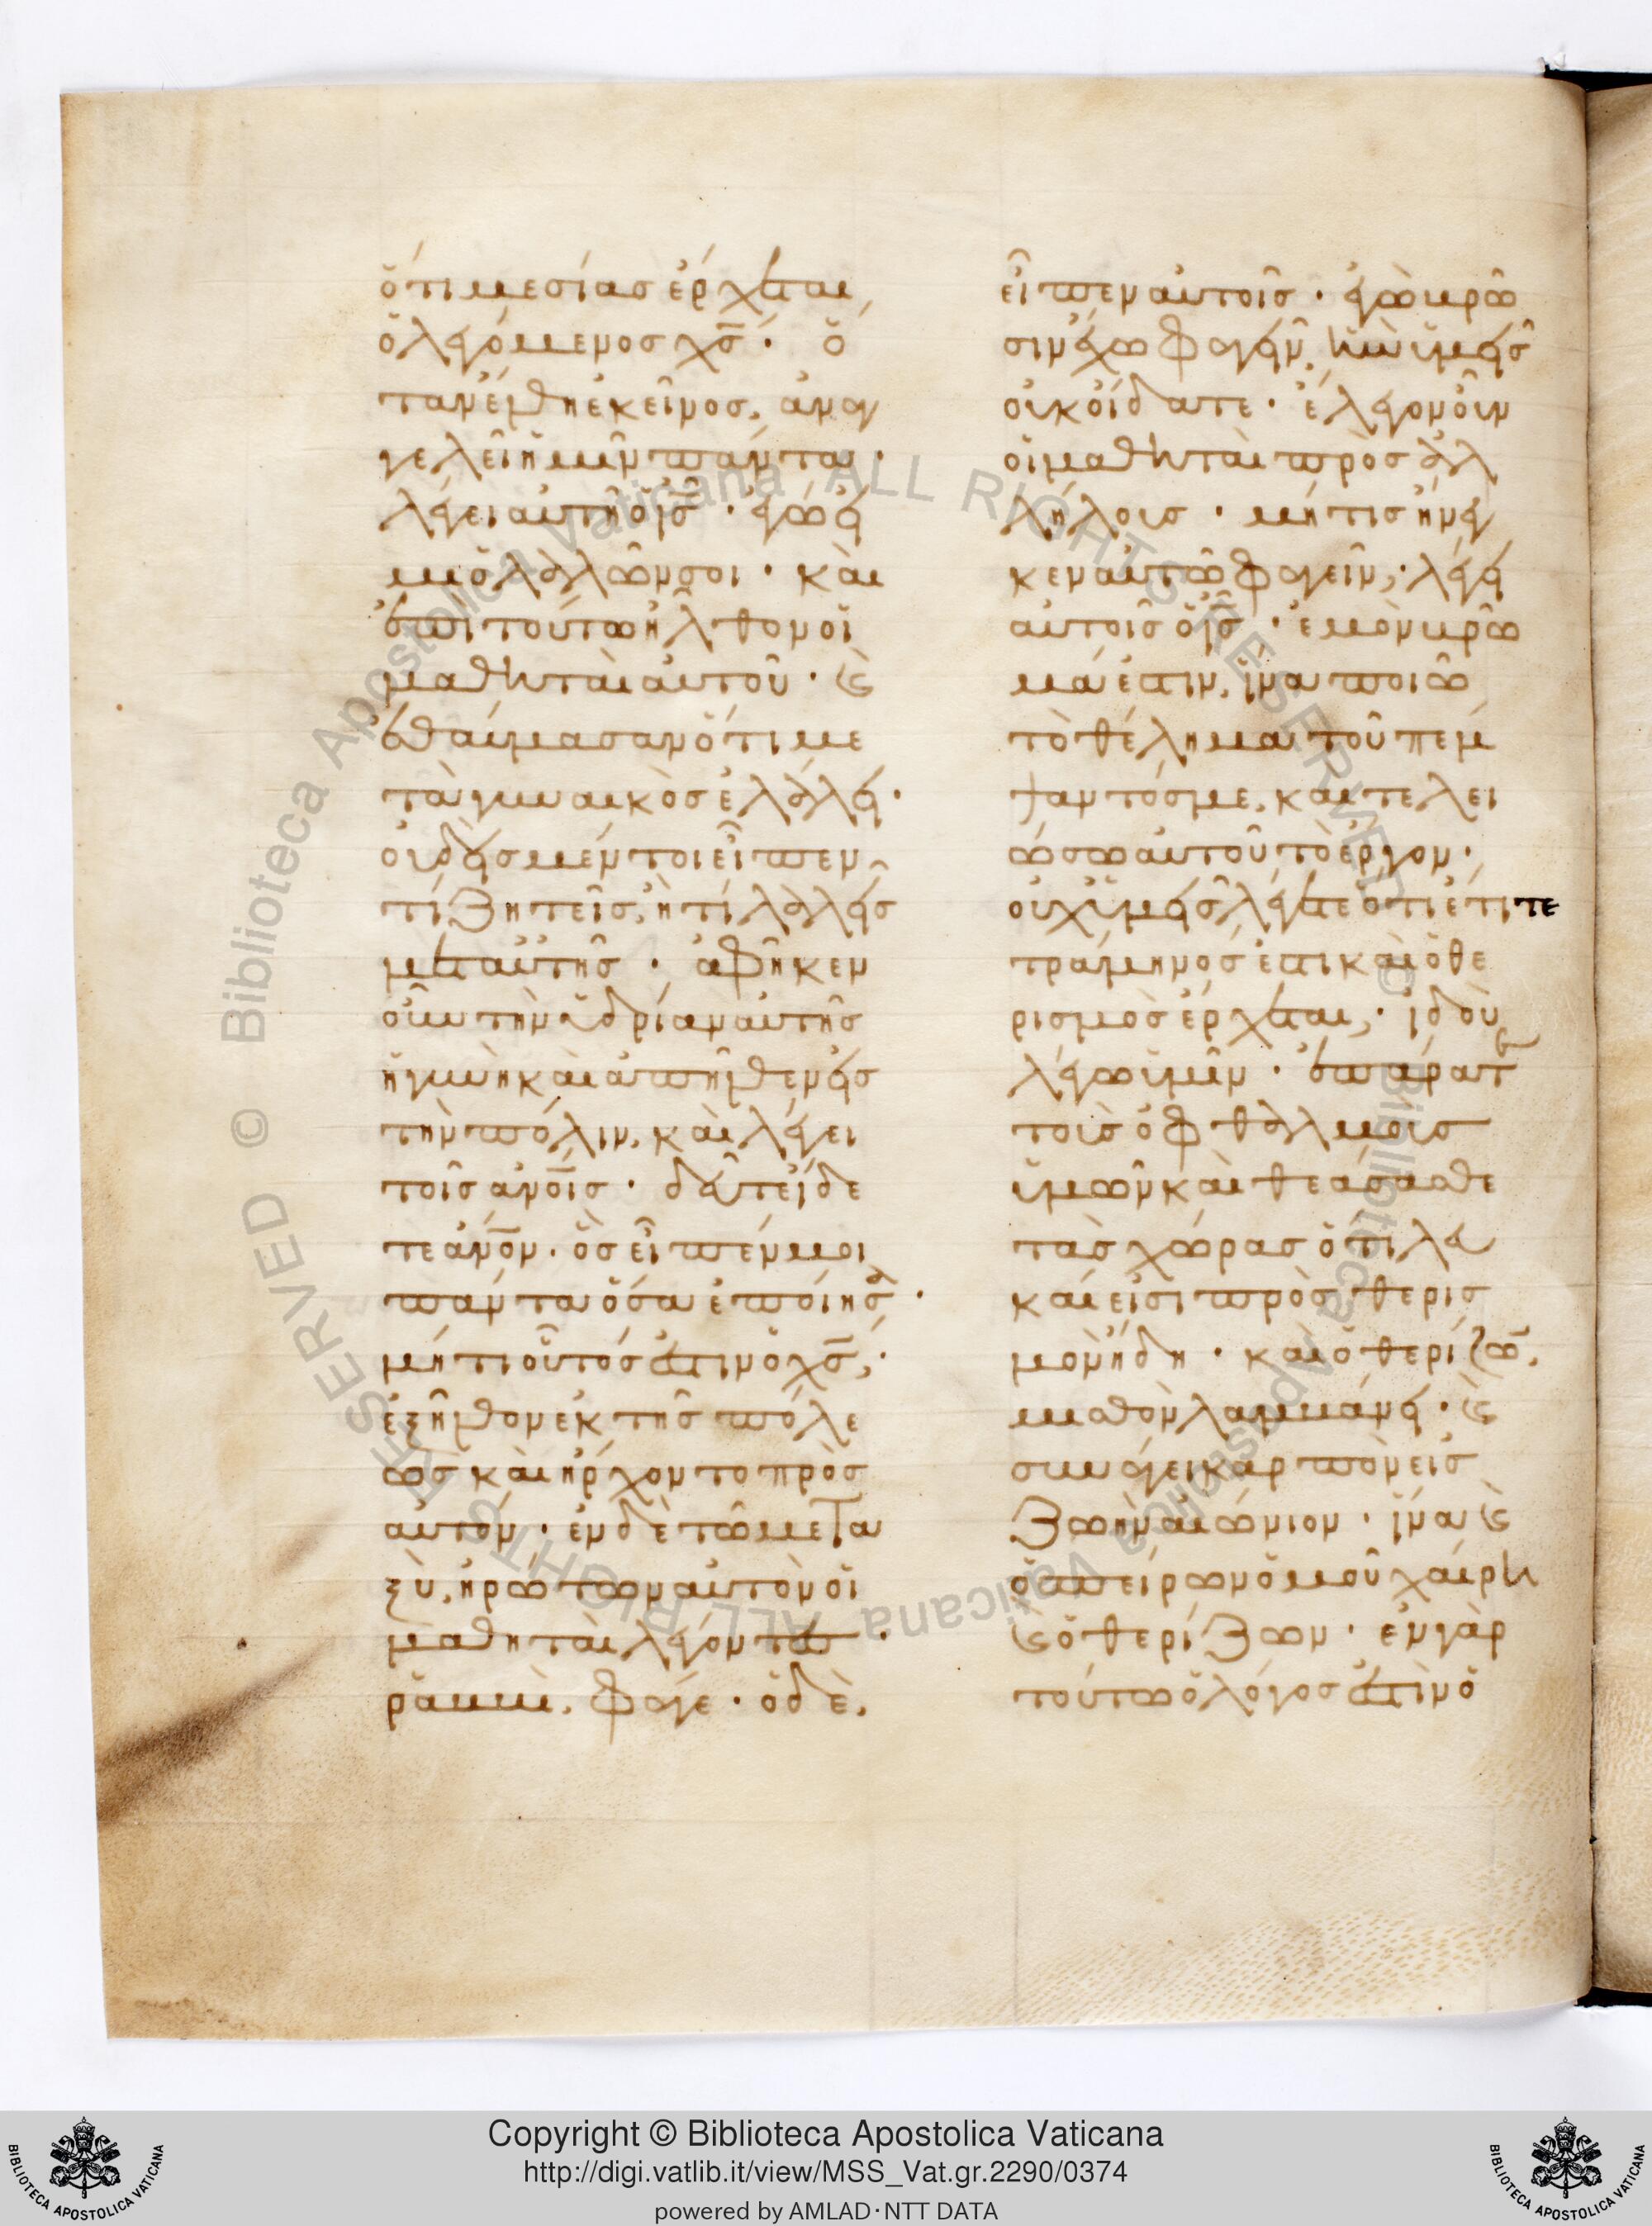 ὅτι μεσίας ἔρχεται,
ὁ λεγόμενος χς̅· ὅ
ταν ἔλθη ἐκεῖνος, ἀναγ
γελεῖ ἡμῖν πάντα·
λέγει αὐτῆ ὁ ις̅· ἐγώ εἰ
μι ὁ λαλῶν σοι· καὶ
ἐπὶ τούτω ἦλθον οἱ
μαθηταὶ αὐτοῦ· ϗ
ἐθαύμασαν ὅτι με
τὰ γυναικὸς ἐλάλει·
οὐδεὶς μέντοι εἶπεν
τί ζητεῖς, ἢ τί λαλεῖς
μετ αὐτῆς· ἀφῆκεν
οὖν τὴν ὑδρίαν αὐτῆς
ἡ γυνὴ καὶ ἀπῆλθεν εἰς
τὴν πόλιν, καὶ λέγει
τοῖς ἀνο̅ις· δεῦτε ἴδε
τε ἀνο̅ν· ὃς εἶπέν μοι
πάντα ὅσα ἐποίησα·
μήτι οὗτός ἐστιν ὁ χς̅,·
ἐξῆλθον ἐκ τῆς πόλε
ως καὶ ἤρχοντο πρὸς
αὐτόν· ἐν δὲ τῶ μετα
ξὺ, ἠρώτων αὐτὸν οἱ
μαθηταὶ λέγοντες·
ῥαββὶ, φάγε· ὁ δὲ,
εἶπεν αὐτοῖς· ἐγὼ βρῶ
σιν ἔχω φαγεῖν, ἣν ὑμεῖς
οὐκ οἴδατε· ἔλεγον οὖν
οἱ μαθηταὶ πρὸς ἀλ
λήλους· μήτις ἤνεγ
κεν αὐτῶ φαγεῖν,· λέγει
αὐτοῖς ὁ ις̅· ἐμὸν βρῶ
μά ἐστιν, ἵνα ποιῶ
τὸ θέλημα τοῦ πέμ
ψαντός με, καὶ τελει
ώσω αὐτοῦ τὸ ἔργον·
οὐχ ὑμεῖς λέγετε ὅτι ἔτι τε
τράμηνός ἐστι καὶ ὁ θε
ρισμὸς ἔρχεται,· ἰδοὺ
λέγω ὑμῖν· ἐπάρατε
τοὺς ὀφθαλμοὺς
ὑμῶν καὶ θεάσασθε
τὰς χώρας ὅτι λευ
καί εἰσι πρὸς θερισ
μὸν ἤδη· καὶ ὁ θερίζω̅,
μισθὸν λαμβάνει· ϗ
συνάγει καρπὸν εἰς
ζωὴν αἰώνιον· ἵνα ϗ
ὁ σπείρων ὁμοῦ χαίρη
ϗ ὁ θερίζων· ἐν γὰρ
τούτω ὁ λόγος ἐστὶν ὁ
© Biblioteca Apostolica Vaticana ALL RIGHTS RESERVED © Biblioteca Apostolica Vaticana ALL RIGHTS RESERVED
Copyright © Biblioteca Apostolica Vaticana
http://digi.vatlib.it/view/MSS_Vat.gr.2290/0374
powered by AMLAD·NTT DATA
BIBLIOTECA APOSTOLICA VATICANA
BIBLIOTECA APOSTOLICA VATICANA